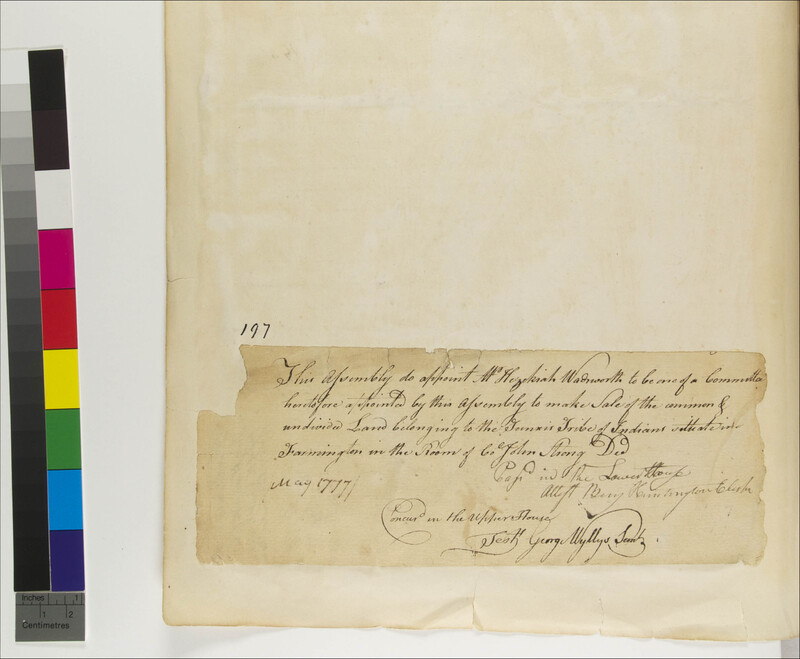 197
This Assembly do appoint Mr. Hezekiah Wadworth to be one of a Committe
heretofore appointed by this Assembly to make Sale of the common &
undivided Land belonging to the Tunxis Tribe of Indians situate in
Farmington in the Room of Col John Strong Decd
May 1777
Pass'd in the Lower House
Attest Benj Huntington Clerk
Concurd in the Upper House
Test George Wyllys Secret
Inches 1
1 2
Centimetres